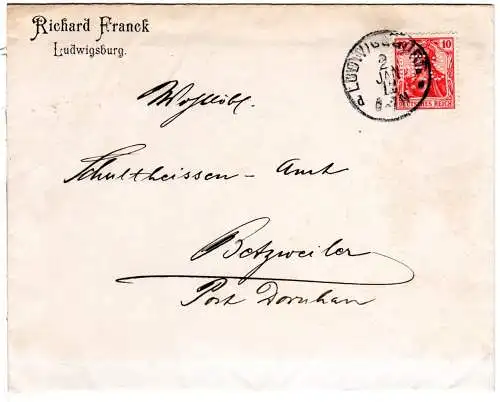 Richard Franck
Ludwigsburg.
LUDWIGSBURG
2
JAN
10
DEUTSCHES REICH
Wohllöbl.
Schultheissen-Amt
Betzweiler
Post Dornhan